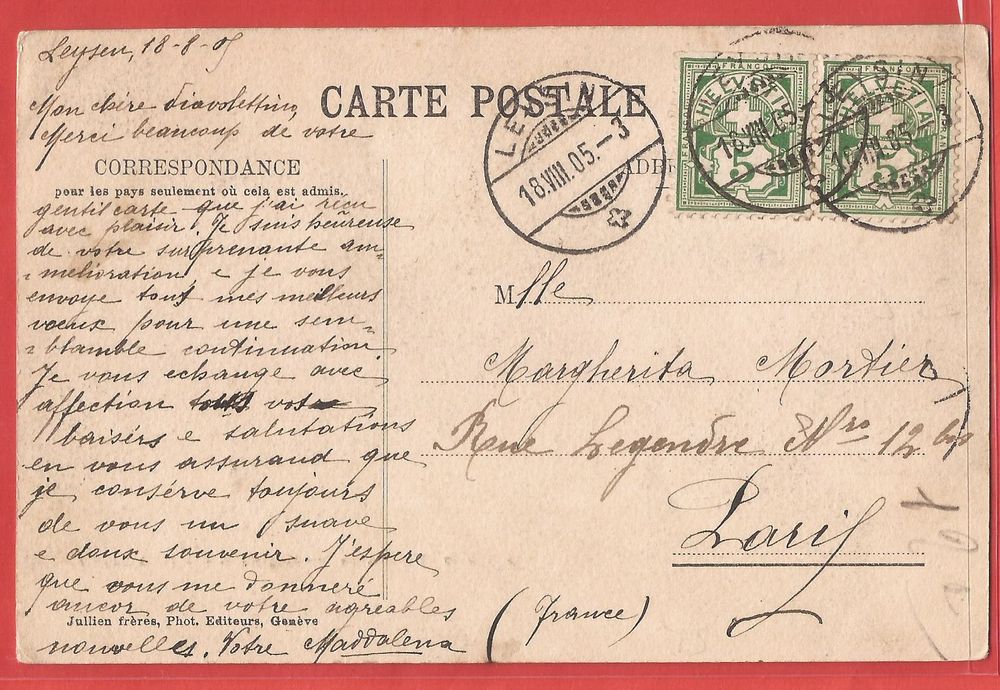 Leysen, 18-8-05
Mon chére diavolettino,
Merci beaucoup de votre
CARTE POSTALE
CORRESPONDANCE
pour les pays seulement où cela est admis.
gentil carte que j'ai reçu
avec plaisir. Je suis heureuse
de votre surprenante am=
=melioration e je vous
envoye tout mes meilleurs
voeux pour une sem=
=blamble continuation
Je vous echange avec
affection
baisérs e salutations
en vous assurand que
je consérve toujours
de vous un suave
e doux souvenir. J'espere
que vous me donneré
ancor de votre agreables
Jullien frères, Phot. Editeurs, Genève
nouvelles. Votre Maddalena
LEYSIN
18.VIII.05.-3
FRANCO
HELVETIA
5
FRANCO
HELVETIA
5
18.VIII.05.-3
ADRE
Mlle
Margherita Mortier
Rue Legendre Nro 12 bis
Paris
(France)